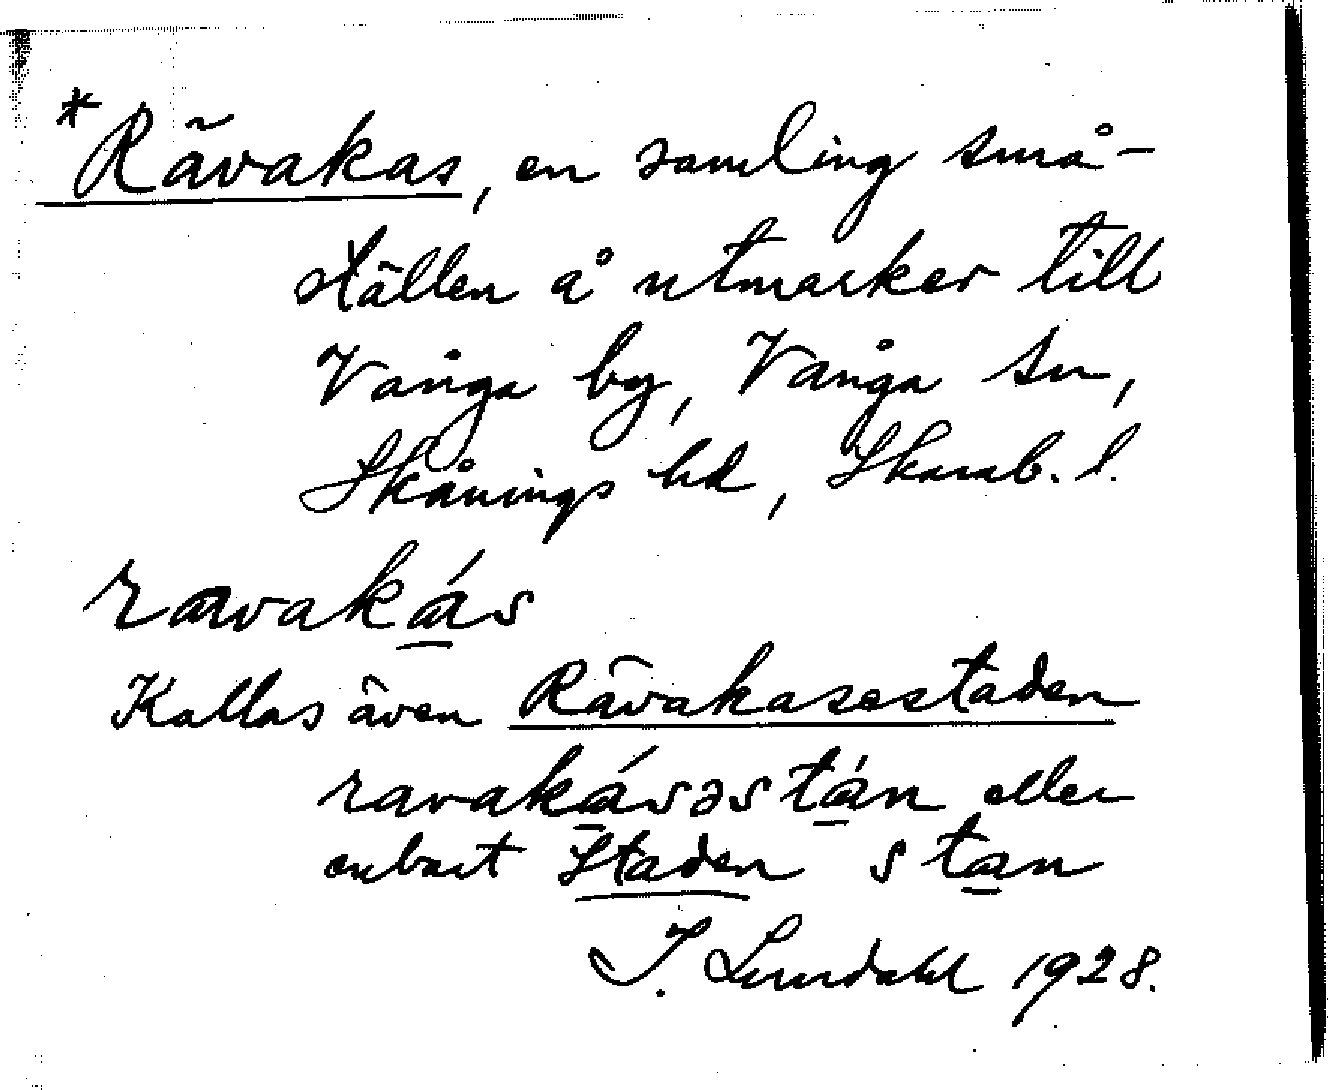 *Rävakas, en samling små-
ställen å utmarker till
Vånga by, Vånga sn,
Skånings hd, Skarab. l.
ravakás
Kallas även Rävakasestaden
ravakásəstán eller
enbart Staden stan
I. Lundahl 1928.